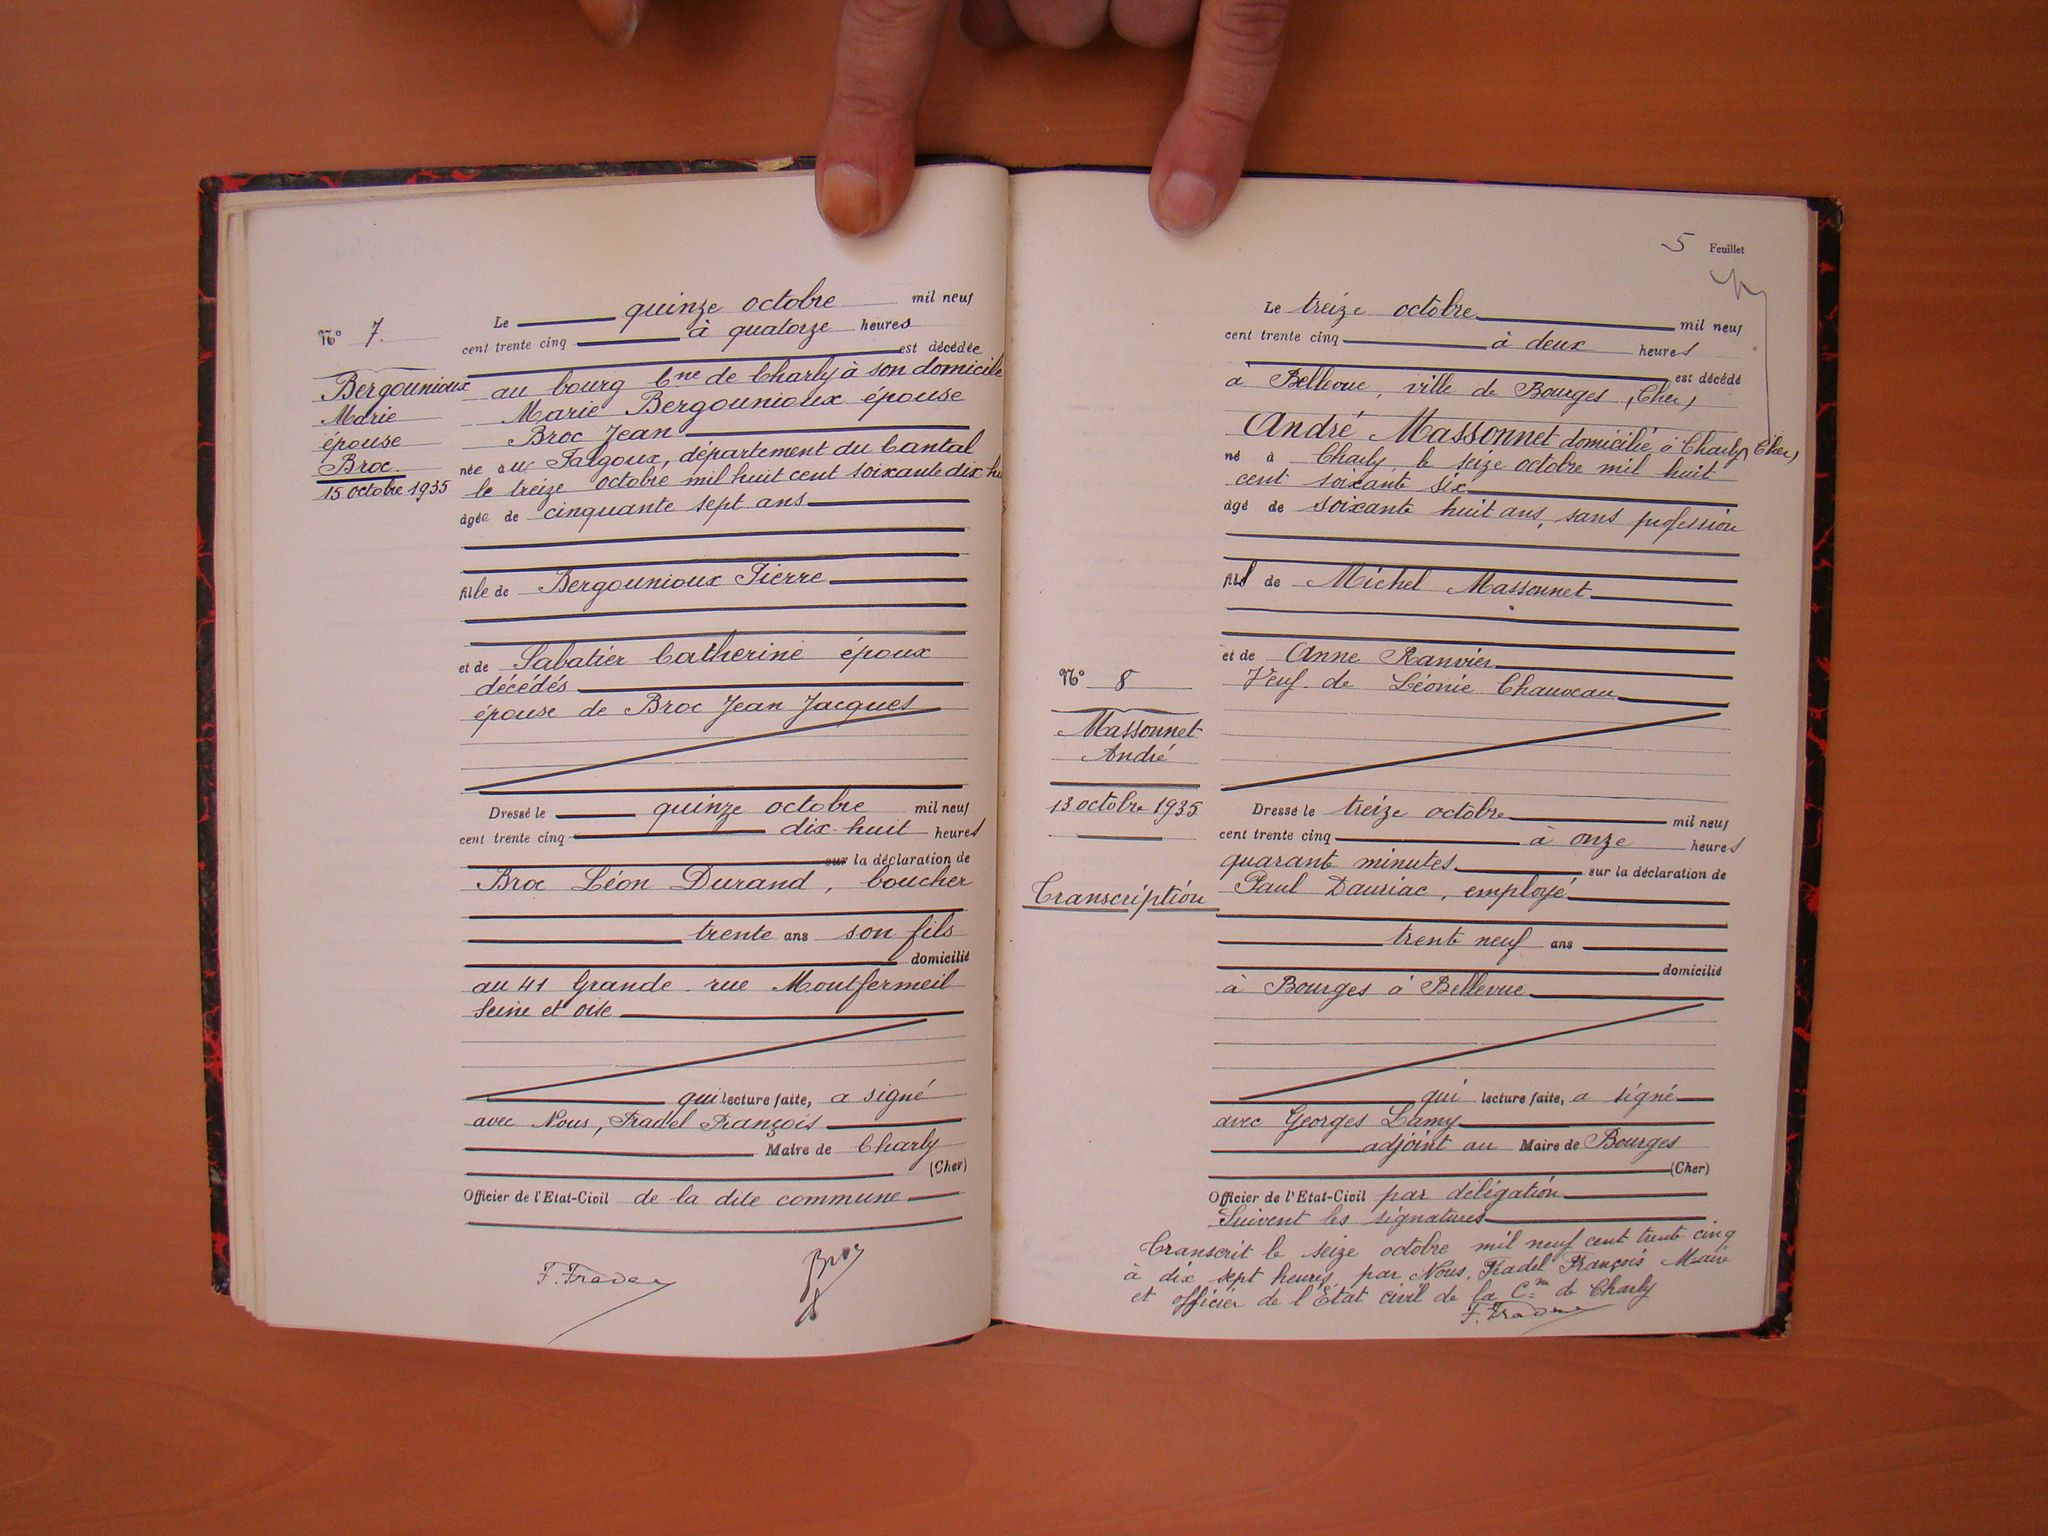 Nº 7.
Bergounioux
Marie
épouse
Broc.
15 octobre 1935
Le quinze octobre mil neuf
cent trente cinq à quatorze heures
est décédée
au bourg Cne de Charly à son domicile
Marie Bergounioux épouse
Broc Jean
née au Falgoux, département du Cantal
le treize octobre mil huit cent soixante dix hu
âgée de cinquante sept ans
fille de Bergounioux Pierre
et de Sabatier Catherine époux
décédés
épouse de Broc Jean Jacques
Dressé le quinze octobre mil neuf
cent trente cinq dix-huit heures
sur la déclaration de
Broc Léon Durand, boucher
trente ans son fils
domicilié
au 41 Grande rue Montfermeil
Seine et oise
qui lecture faite, a signé
avec Nous, Fradel François
Maire de Charly
(Cher)
Officier de l'Etat-Civil de la dite commune
F. Fradel
Broc
5 Feuillet
Nº 8
Massonnet
André
13 octobre 1935
Transcription
Le treize octobre mil neuf
cent trente cinq à deux heures
est décédé
à Bellevue, ville de Bourges (Cher)
André Massonnet domicilié à Charly (Cher)
né à Charly, le seize octobre mil huit
cent soixante six
âgé de soixante huit ans, sans profession
fils de Michel Massonnet
et de Anne Ranvier
Veuf de Léonie Chauveau
Dressé le treize octobre mil neuf
cent trente cinq à onze heures
quarante minutes sur la déclaration de
Paul Dauriac, employé
trente neuf ans
domicilié
à Bourges à Bellevue
qui lecture faite, a signé
avec Georges Lamy
adjoint au Maire de Bourges
(Cher)
Officier de l'Etat-Civil par délégation
Suivent les signatures
Transcrit le seize octobre mil neuf cent trente cinq
à dix sept heures, par Nous, Fradel François Maire
et officier de l'Etat civil de la Cne de Charly
F. Fradel